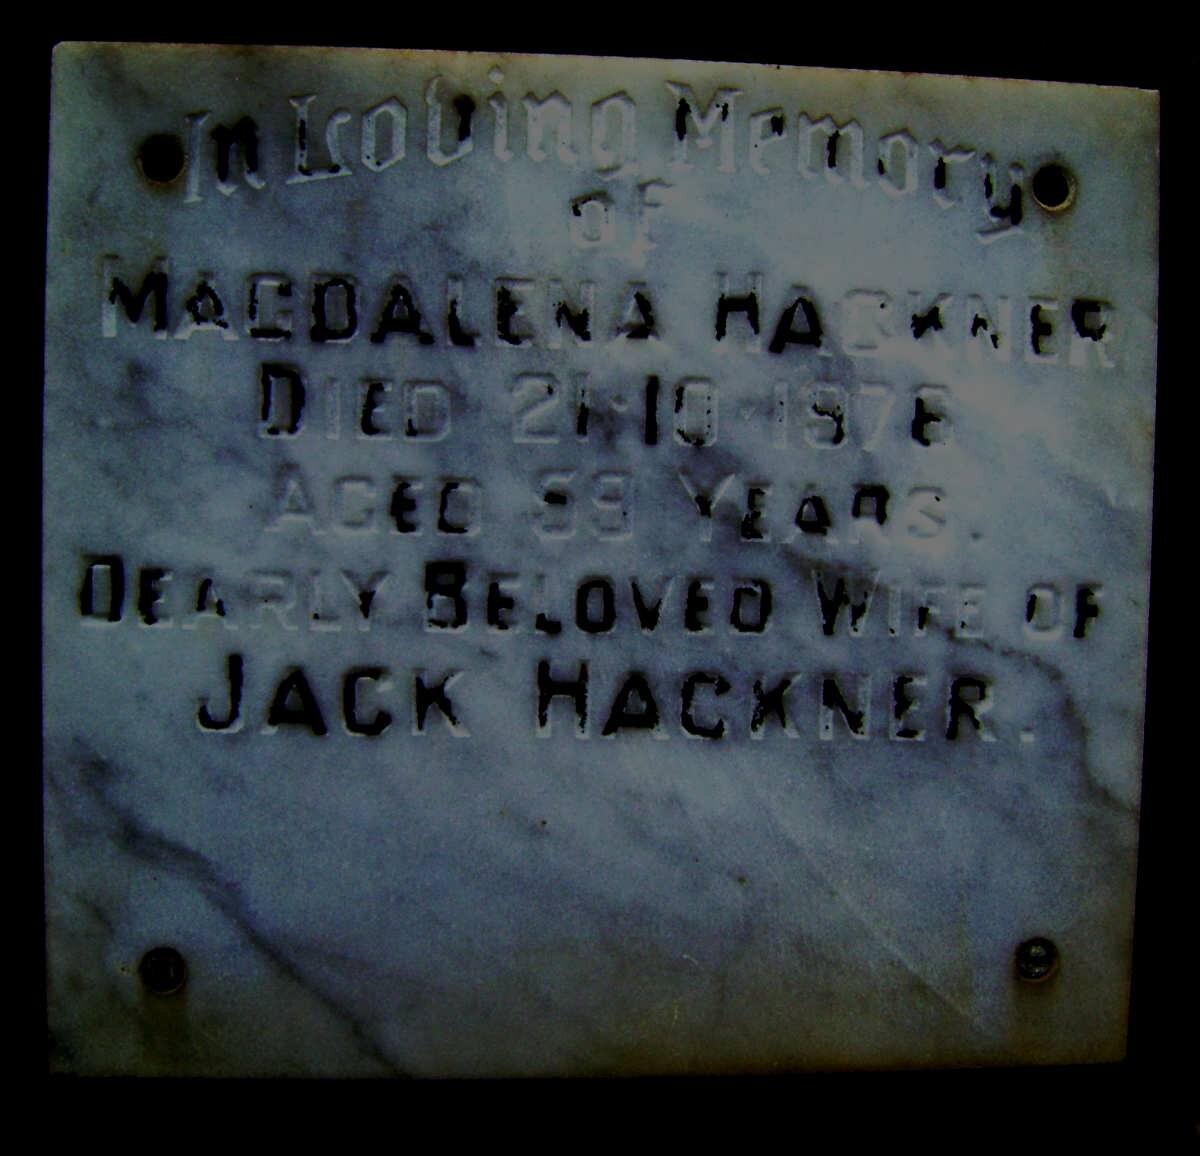 In Loving Memory
of
MAGDALENA HACKNER
DIED 21·10·1976
AGED 59 YEARS.
DEARLY BELOVED WIFE OF
JACK HACKNER.